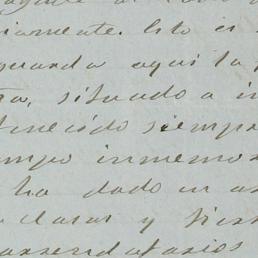 iamente. Esto es
guarda aqui la
situado a in
tenecido siempre
empo inmemo
ha dado en a
claras y
arrendatarios